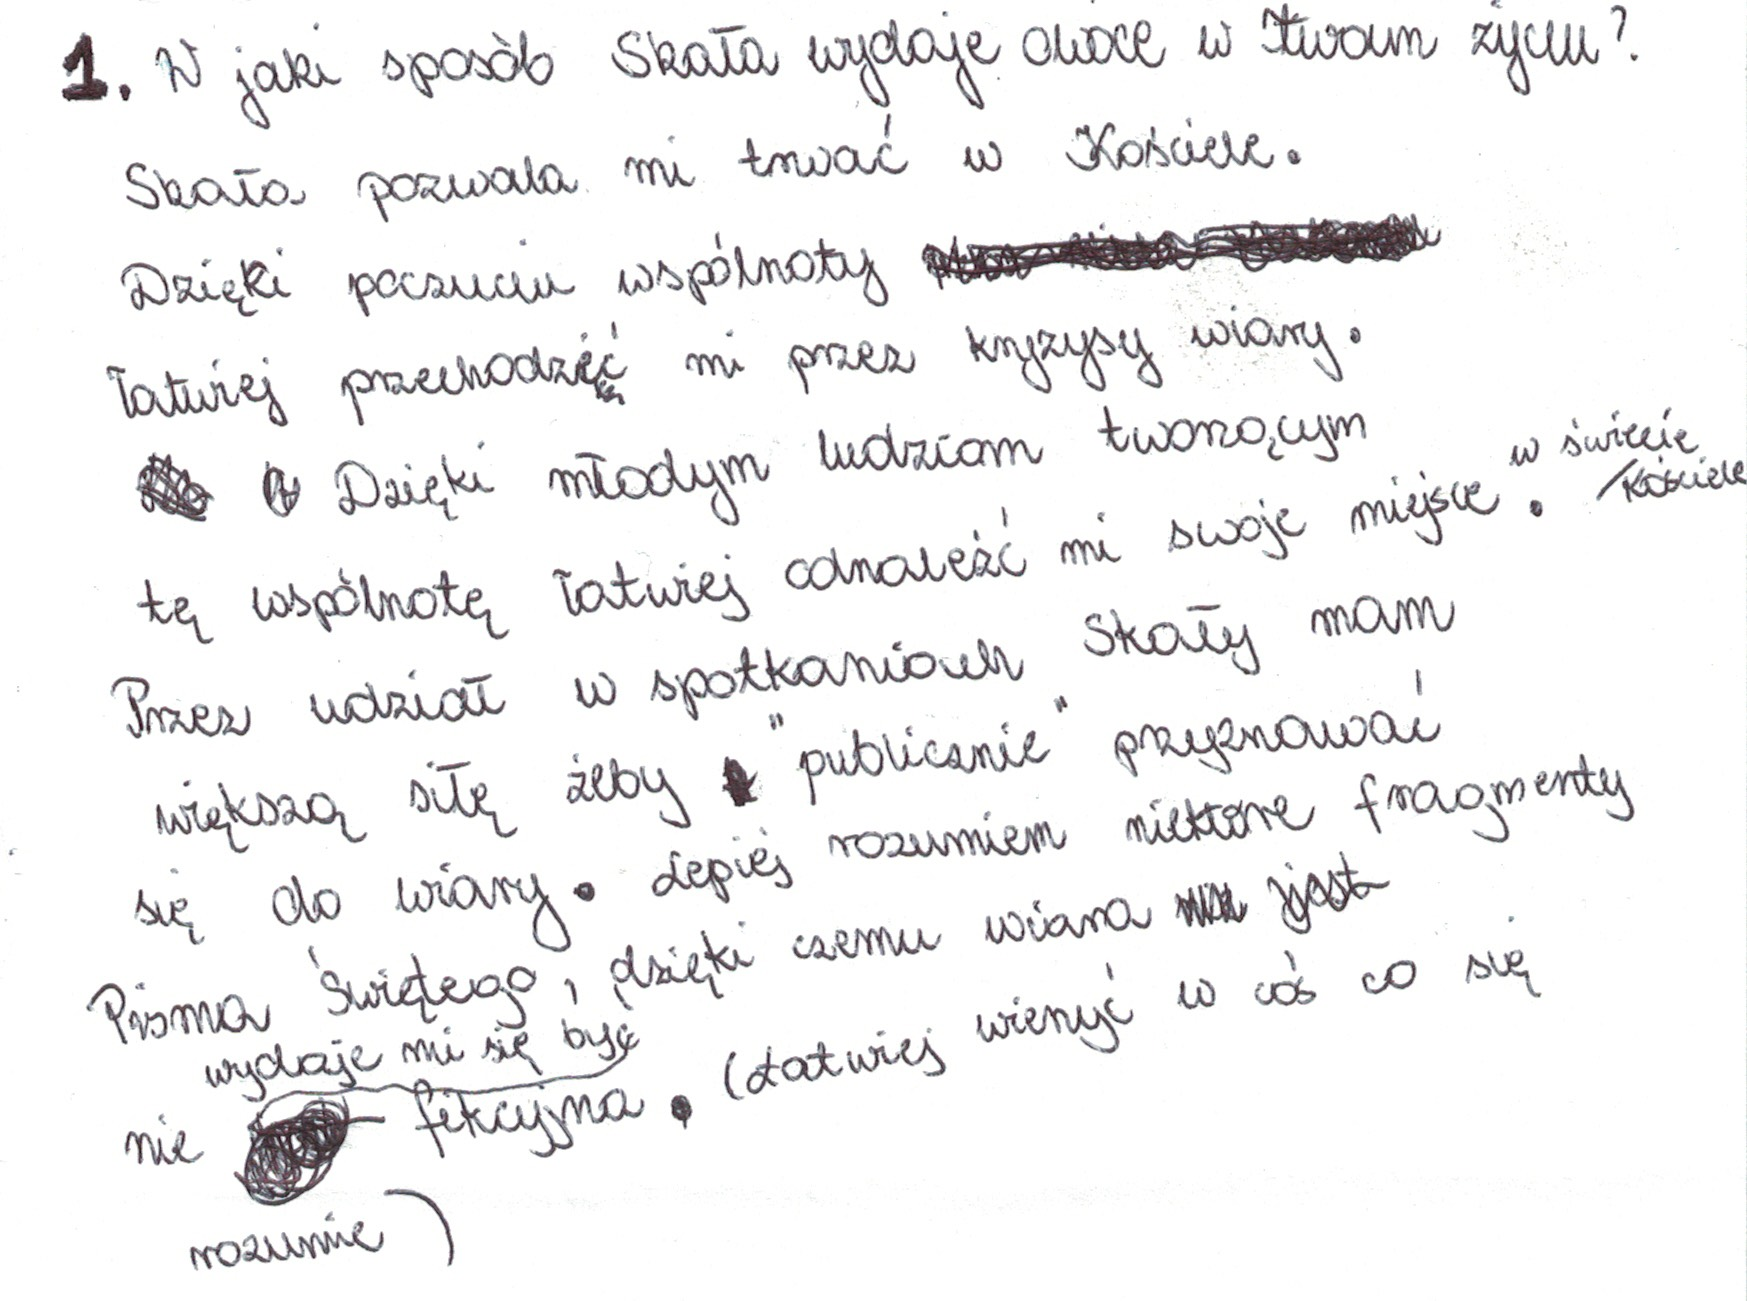 1. W jaki sposób Skała wydaje owoce w Twoim życiu?
Skała pozwala mi trwać w Kościele.
Dzięki poczuciu wspólnoty
łatwiej przechodzić mi przez kryzysy wiary.
Dzięki młodym ludziom tworzącym
tę wspólnotę łatwiej odnaleźć mi swoje miejsce w świecie /Kościele.
Przez udział w spotkaniach Skały mam
większą siłę żeby "publicznie" przyznawać
się do wiary. Lepiej rozumiem niektóre fragmenty
Pisma Świętego, dzięki czemu wiara
nie wydaje mi się być fikcyjna. (Łatwiej wierzyć w coś co się
rozumie)